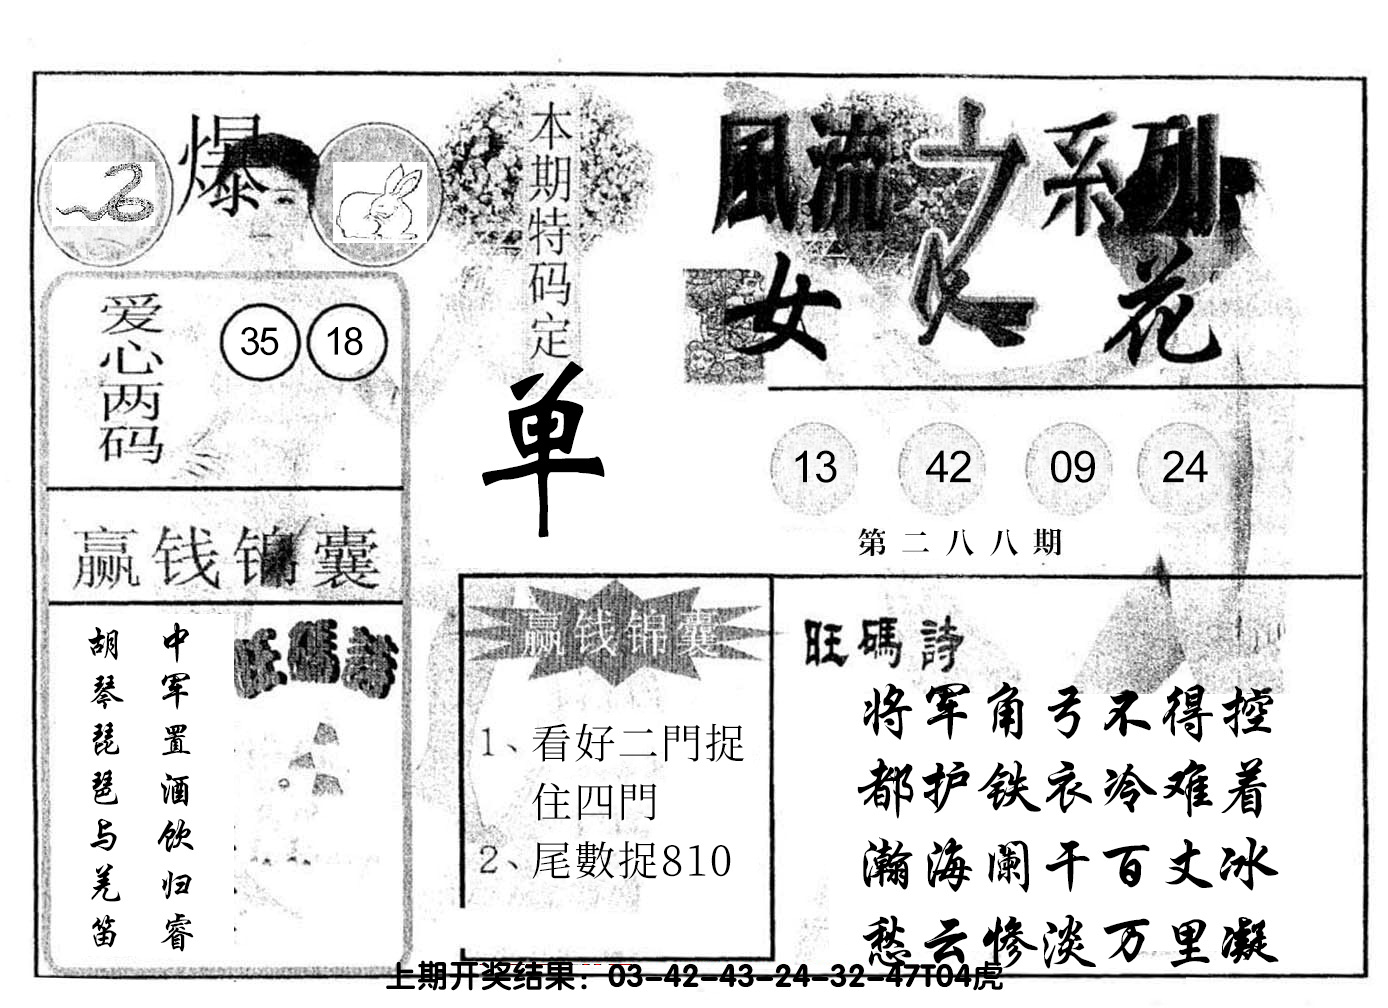 爆
本期特码定
单
風流之系列
女人花
爱心两码
35 18
13 42 09 24
第二八八期
赢钱锦囊
中军置酒饮归睿
胡琴琵琶与羌笛
旺碼詩
赢钱锦囊
1、看好二門捉
住四門
2、尾數捉810
旺碼詩
将军角弓不得控
都护铁衣冷难着
瀚海阑干百丈冰
愁云惨淡万里凝
上期开奖结果：03-42-43-24-32-47T04虎